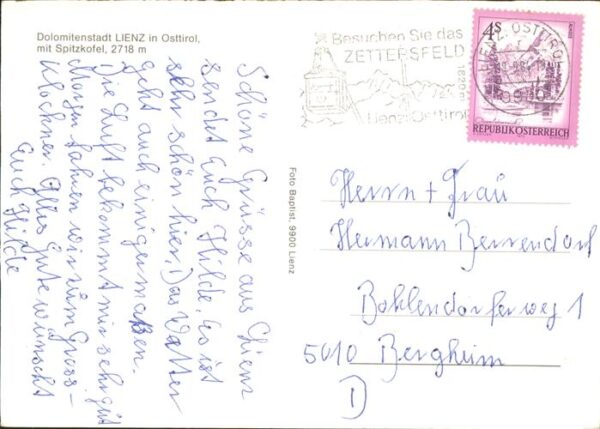 Dolomitenstadt LIENZ in Osttirol,
mit Spitzkofel, 2718 m
Besuchen Sie das
ZETTERSFELD
Lienz/Osttirol
4S
REPUBLIK ÖSTERREICH
Schöne Grüsse aus Lienz
sendet Euch Hilde. Es ist
sehr schön hier, Das Wetter
geht auch einigermaßen.
Die Luft bekommt mir sehr gut
Morgen fahren wir zum Gross-
Klockner. Alles Gute wünscht
Euch Hilde
Foto Baptist, 9900 Lienz
Herrn + Frau
Hermann Berrendorf
Bohlendorferweg 1
5010 Bergheim
D